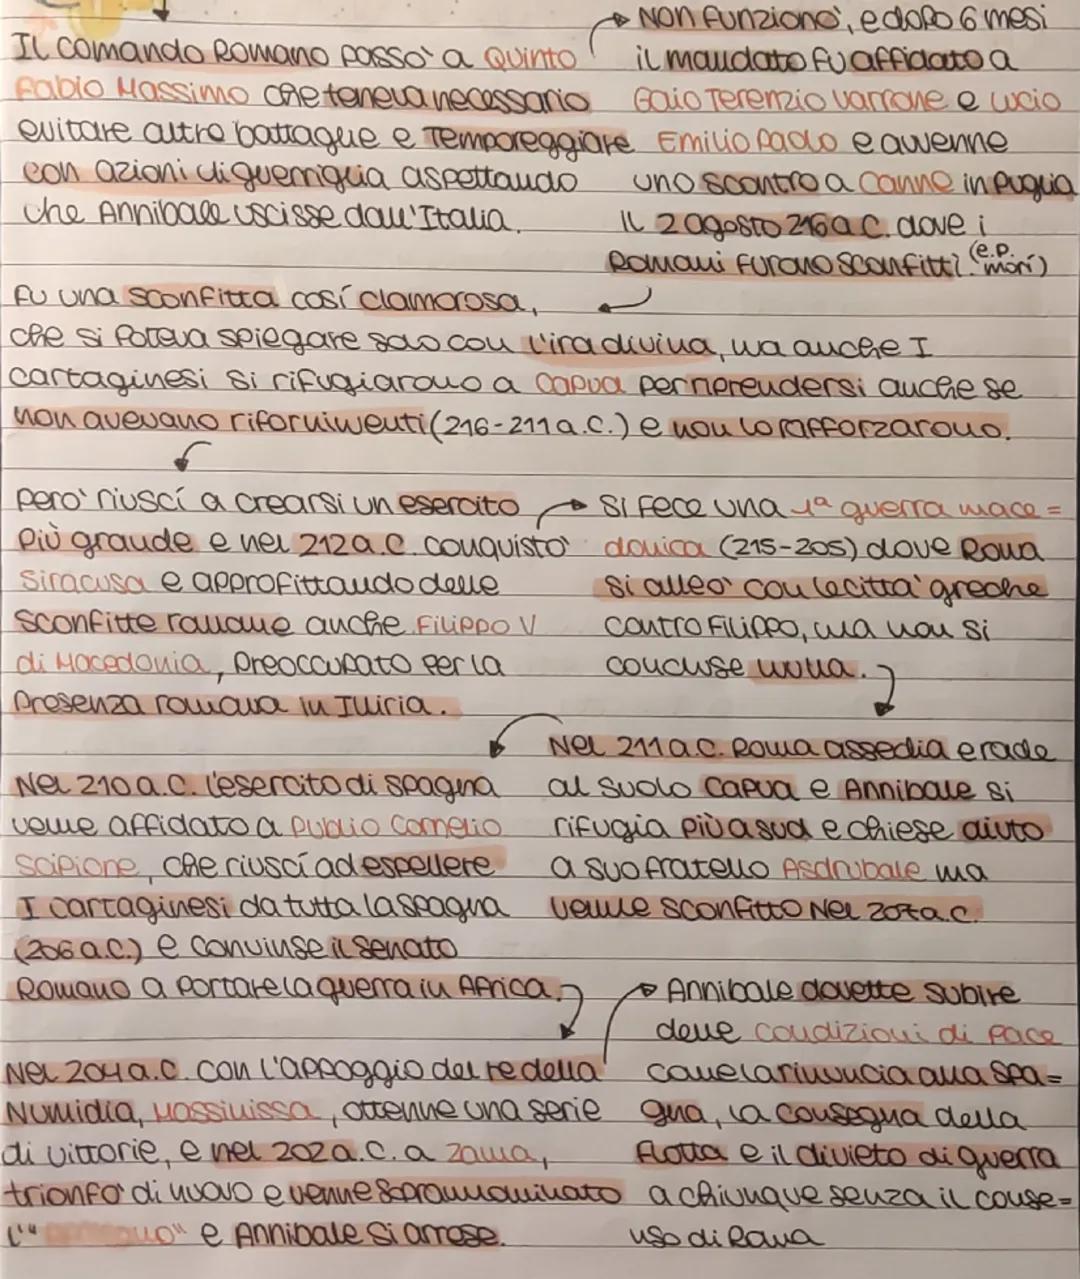 Il comando Romano passò a Quinto
Fabio Massimo che teneva necessario
evitare altre battaglie e Temporeggiare
con azioni di guerriglia aspettando
che Annibale uscisse dall'Italia.
Non funzionò, e dopo 6 mesi
il mandato fu affidato a
Gaio Terenzio Varrone e Lucio
Emilio Paolo e avvenne
uno scontro a Canne in Puglia
Il 2 agosto 216 a.C. dove i
Romani furono sconfitti. (e.p. morì)
Fu una sconfitta così clamorosa,
che si poteva spiegare solo con l'ira divina, ma anche I
cartaginesi si rifugiarono a Capua per riprendersi anche se
non avevano rifornimenti (216-211 a.C.) e non lo rafforzarono.
Però riuscì a crearsi un esercito
più grande e nel 212 a.C. conquistò
Siracusa e approfittando delle
sconfitte romane anche Filippo V
di Macedonia, preoccupato per la
presenza romana in Illiria.
Si fece una 1ª guerra mace=
donica (215-205) dove Roma
si alleò con le città greche
contro Filippo, ma non si
concluse nulla.
Nel 211 a.C. Roma assedia e rade
al suolo Capua e Annibale si
rifugia più a sud e chiese aiuto
a suo fratello Asdrubale ma
venne sconfitto nel 207 a.C.
Nel 210 a.C. l'esercito di Spagna
venne affidato a Publio Cornelio
Scipione, che riuscì ad espellere
I cartaginesi da tutta la Spagna
(206 a.C.) e convinse il senato
Romano a portare la guerra in Africa.
Nel 204 a.C. con l'appoggio del re della
Numidia, Massinissa, ottenne una serie
di vittorie, e nel 202 a.C. a Zama,
trionfò di nuovo e venne soprannominato
l'" " e Annibale si arrese.
Annibale dovette subire
delle condizioni di pace
come la rinuncia alla Spa=
gna, la consegna della
flotta e il divieto di guerra
a chiunque senza il conse=
nso di Roma